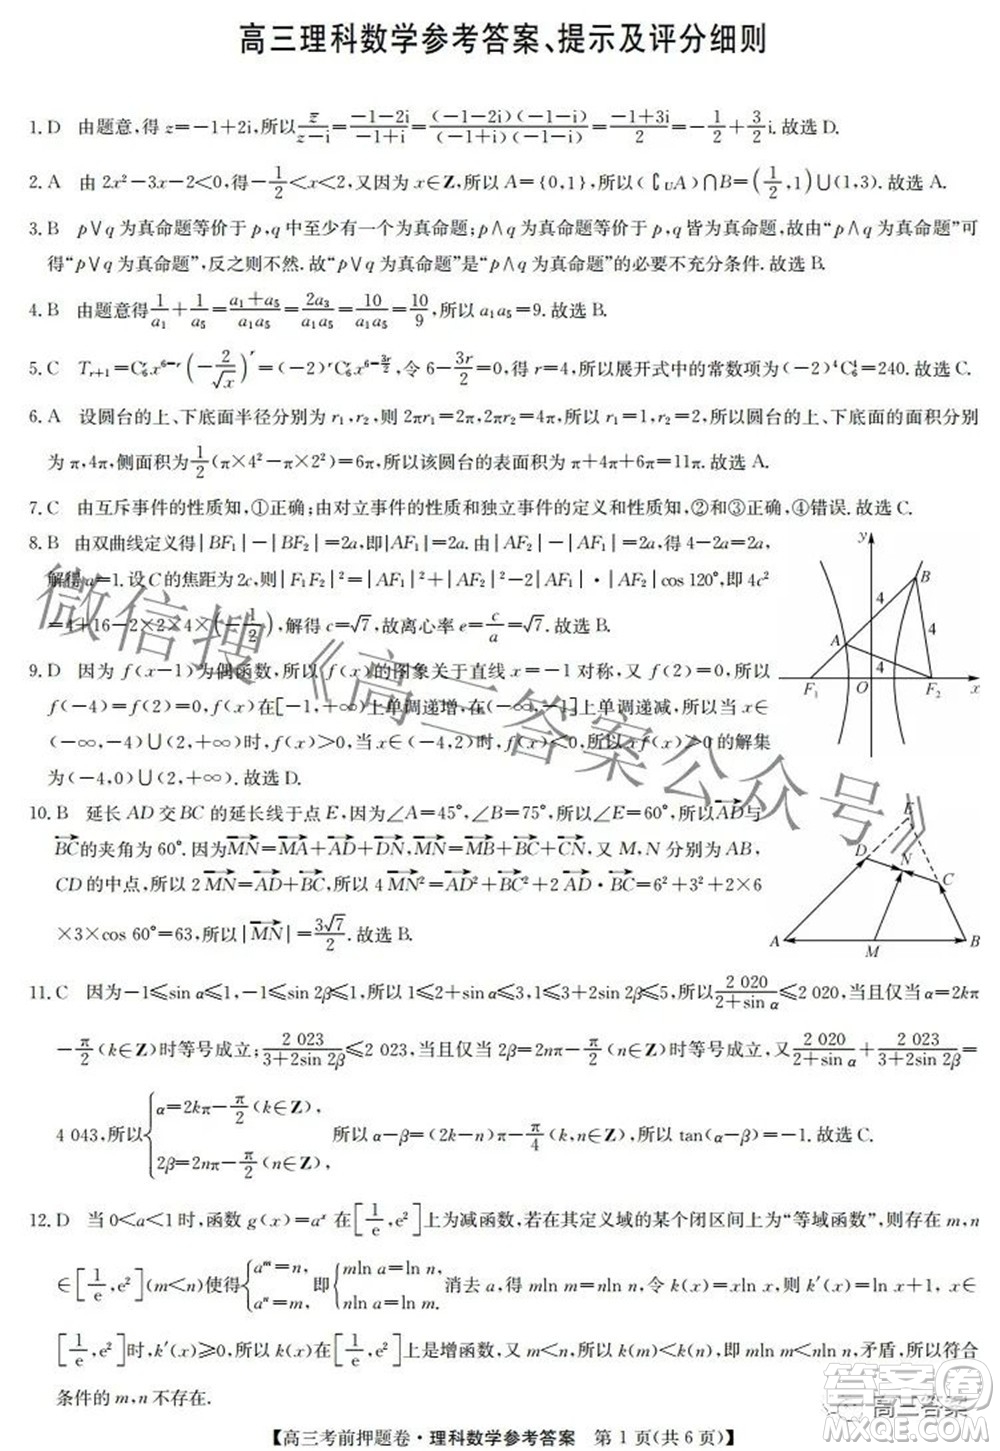 高三理科数学参考答案、提示及评分细则
1. D 由题意,得 z=-1+2i,所以 z̄/(z-i)=(-1-2i)/(-1+i)=(-1-2i)(-1-i)/((-1+i)(-1-i))=(-1+3i)/2=-1/2+3/2 i.故选 D.
2. A 由 2x²-3x-2<0,得-1/2<x<2,又因为 x∈Z,所以 A={0,1},所以(∁UA)∩B=(1/2,1)∪(1,3).故选 A.
3. B p∨q 为真命题等价于 p,q 中至少有一个为真命题;p∧q 为真命题等价于 p,q 皆为真命题,故由“p∧q 为真命题”可
得“p∨q 为真命题”,反之则不然.故“p∨q 为真命题”是“p∧q 为真命题”的必要不充分条件.故选 B.
4. B 由题意得 1/a₁+1/a₅=(a₁+a₅)/(a₁a₅)=2a₃/(a₁a₅)=10/(a₁a₅)=10/9,所以 a₁a₅=9.故选 B.
5. C Tᵣ₊₁=C₆ʳx⁶⁻ʳ(-2/√x)ʳ=(-2)ʳC₆ʳx^(6-3r/2),令 6-3r/2=0 得 r=4,所以展开式中的常数项为(-2)⁴C₆⁴=240.故选 C.
6. A 设圆台的上、下底面半径分别为 r₁,r₂,则 2πr₁=2π,2πr₂=4π,所以 r₁=1,r₂=2,所以圆台的上、下底面的面积分别
为 π,4π,侧面积为 1/2(π×4²-π×2²)=6π,所以该圆台的表面积为 π+4π+6π=11π.故选 A.
7. C 由互斥事件的性质知,①正确;由对立事件的性质和独立事件的定义和性质知,②和③正确,④错误.故选 C.
8. B 由双曲线定义得|BF₁|-|BF₂|=2a,即|AF₁|=2a.由|AF₂|-|AF₁|=2a,得 4-2a=2a,
解得 a=1.设 C 的焦距为 2c,则|F₁F₂|²=|AF₁|²+|AF₂|²-2|AF₁|·|AF₂|cos 120°,即 4c²
=4+16-2×2×4×(-1/2),解得 c=√7,故离心率 e=c/a=√7.故选 B.
y
B
4
A
4
4
F₁
O
F₂
x
9. D 因为 f(x-1)为偶函数,所以 f(x)的图象关于直线 x=-1 对称,又 f(2)=0,所以
f(-4)=f(2)=0,在[-1,+∞)上单调递增,在(-∞,-1]上单调递减,所以当 x∈
(-∞,-4)∪(2,+∞)时,f(x)>0,当 x∈(-4,2)时,f(x)<0,所以 f(x)>0 的解集
为(-4,0)∪(2,+∞).故选 D.
10. B 延长 AD 交 BC 的延长线于点 E,因为∠A=45°,∠B=75°,所以∠E=60°,所以AD→与
BC→的夹角为 60°.因为MN→=MA→+AD→+DN→,MN→=MB→+BC→+CN→,又 M,N 分别为 AB,
CD 的中点,所以 2MN→=AD→+BC→,所以 4MN→²=AD→²+BC→²+2AD→·BC→=6²+3²+2×6
×3×cos 60°=63,所以|MN→|=3√7/2.故选 B.
E
D
N
C
A
M
B
11. C 因为-1≤sin α≤1,-1≤sin 2β≤1,所以 1≤2+sin α≤3,1≤3+2sin 2β≤5,所以 2 020/(2+sin α)≤2 020,当且仅当 α=2kπ
-π/2(k∈Z)时等号成立;2 023/(3+2sin 2β)≤2 023,当且仅当 2β=2nπ-π/2(n∈Z)时等号成立,又 2 020/(2+sin α)+2 023/(3+2sin 2β)=
4 043,所以{α=2kπ-π/2(k∈Z), 2β=2nπ-π/2(n∈Z) 所以 α-β=(2k-n)π-π/4(k,n∈Z),所以 tan(α-β)=-1.故选 C.
12. D 当 0<a<1 时,函数 g(x)=aˣ 在[1/e,e²]上为减函数,若在其定义域的某个闭区间上为“等域函数”,则存在 m,n
∈[1/e,e²](m<n)使得{aᵐ=n, aⁿ=m, 即{mln a=ln n, nln a=ln m. 消去 a,得 mln m=nln n,令 k(x)=xln x,则 k′(x)=ln x+1,x∈
[1/e,e²]时,k′(x)≥0,所以 k(x)在[1/e,e²]上是增函数,又 m<n,所以 k(m)<k(n),即 mln m<nln n,矛盾,所以符合
条件的 m,n 不存在.
【高三考前押题卷·理科数学参考答案 第 1 页(共 6 页)】
微信搜《高三答案公众号》
答案圈
高三答案